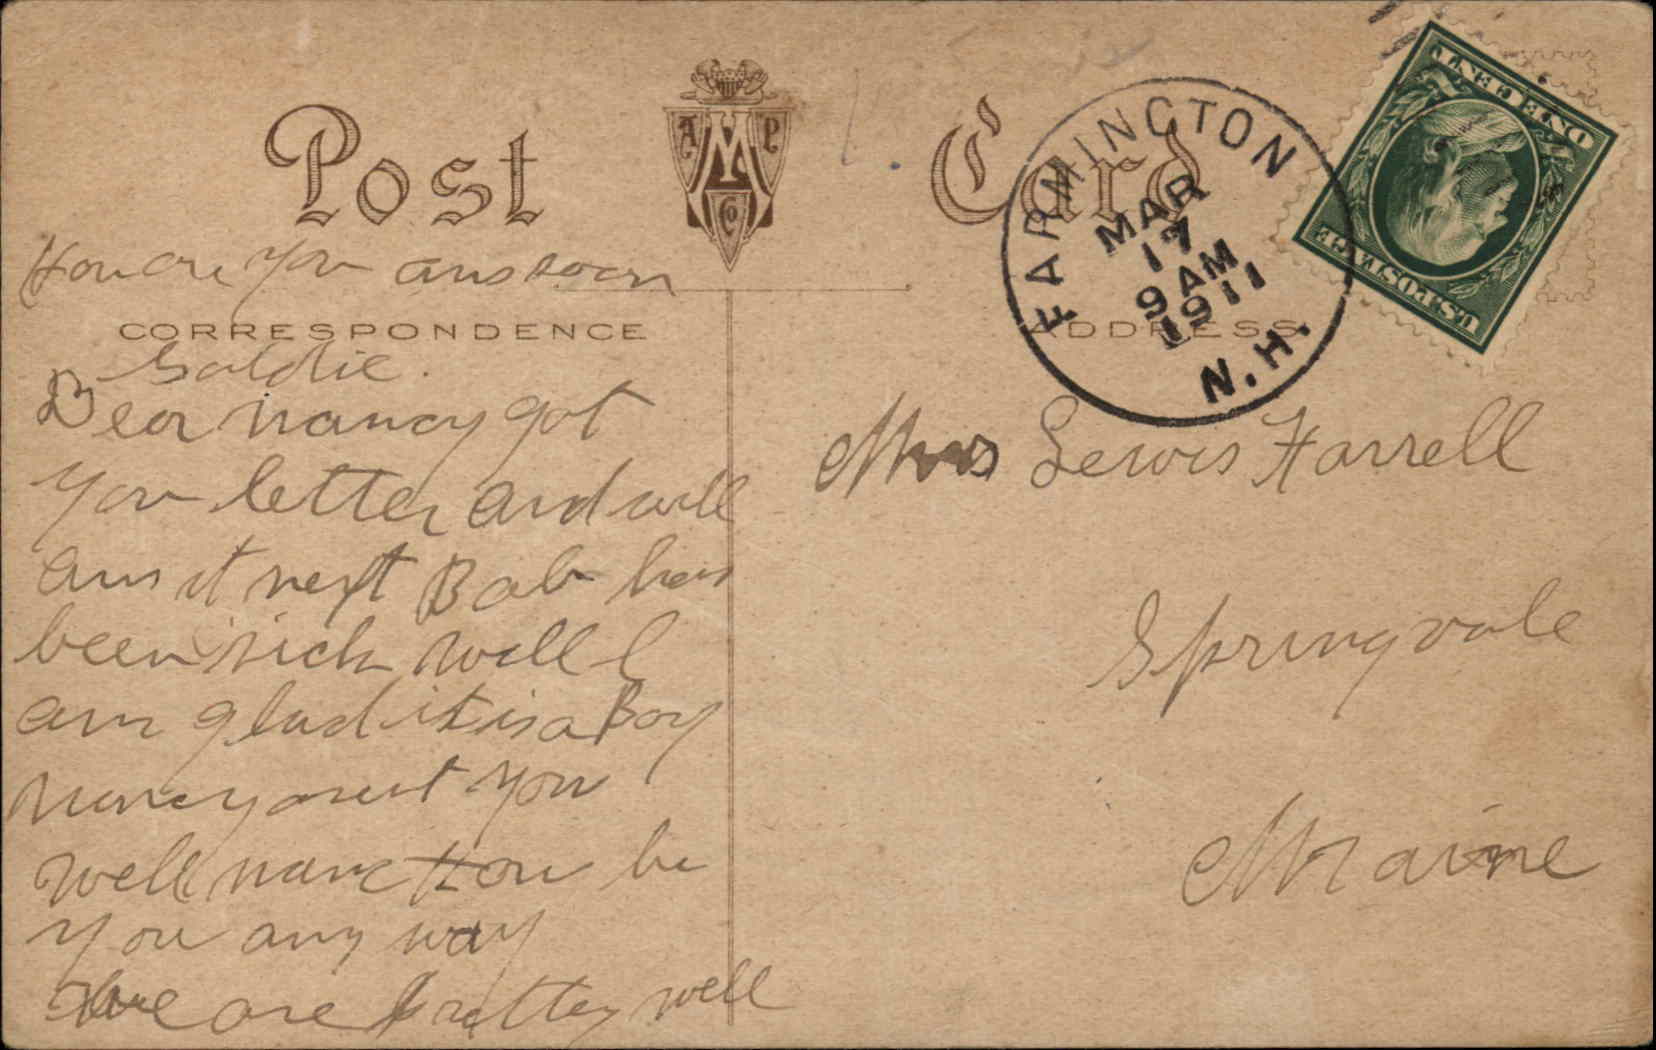 Post Card
A M P
Co
FARMINGTON
MAR
17
9 AM
1911
N.H.
ONE CENT
U.S. POSTAGE
How are you ans soon
CORRESPONDENCE
ADDRESS
Goldie.
Dear Nancy got
your letter and will
ans it next Bab has
been sick well I
am glad it is a Boy
Nancy arent you
well nanc How be
you any way
we are prettey well
Mrs Lewis Farrell
Springvale
Maine